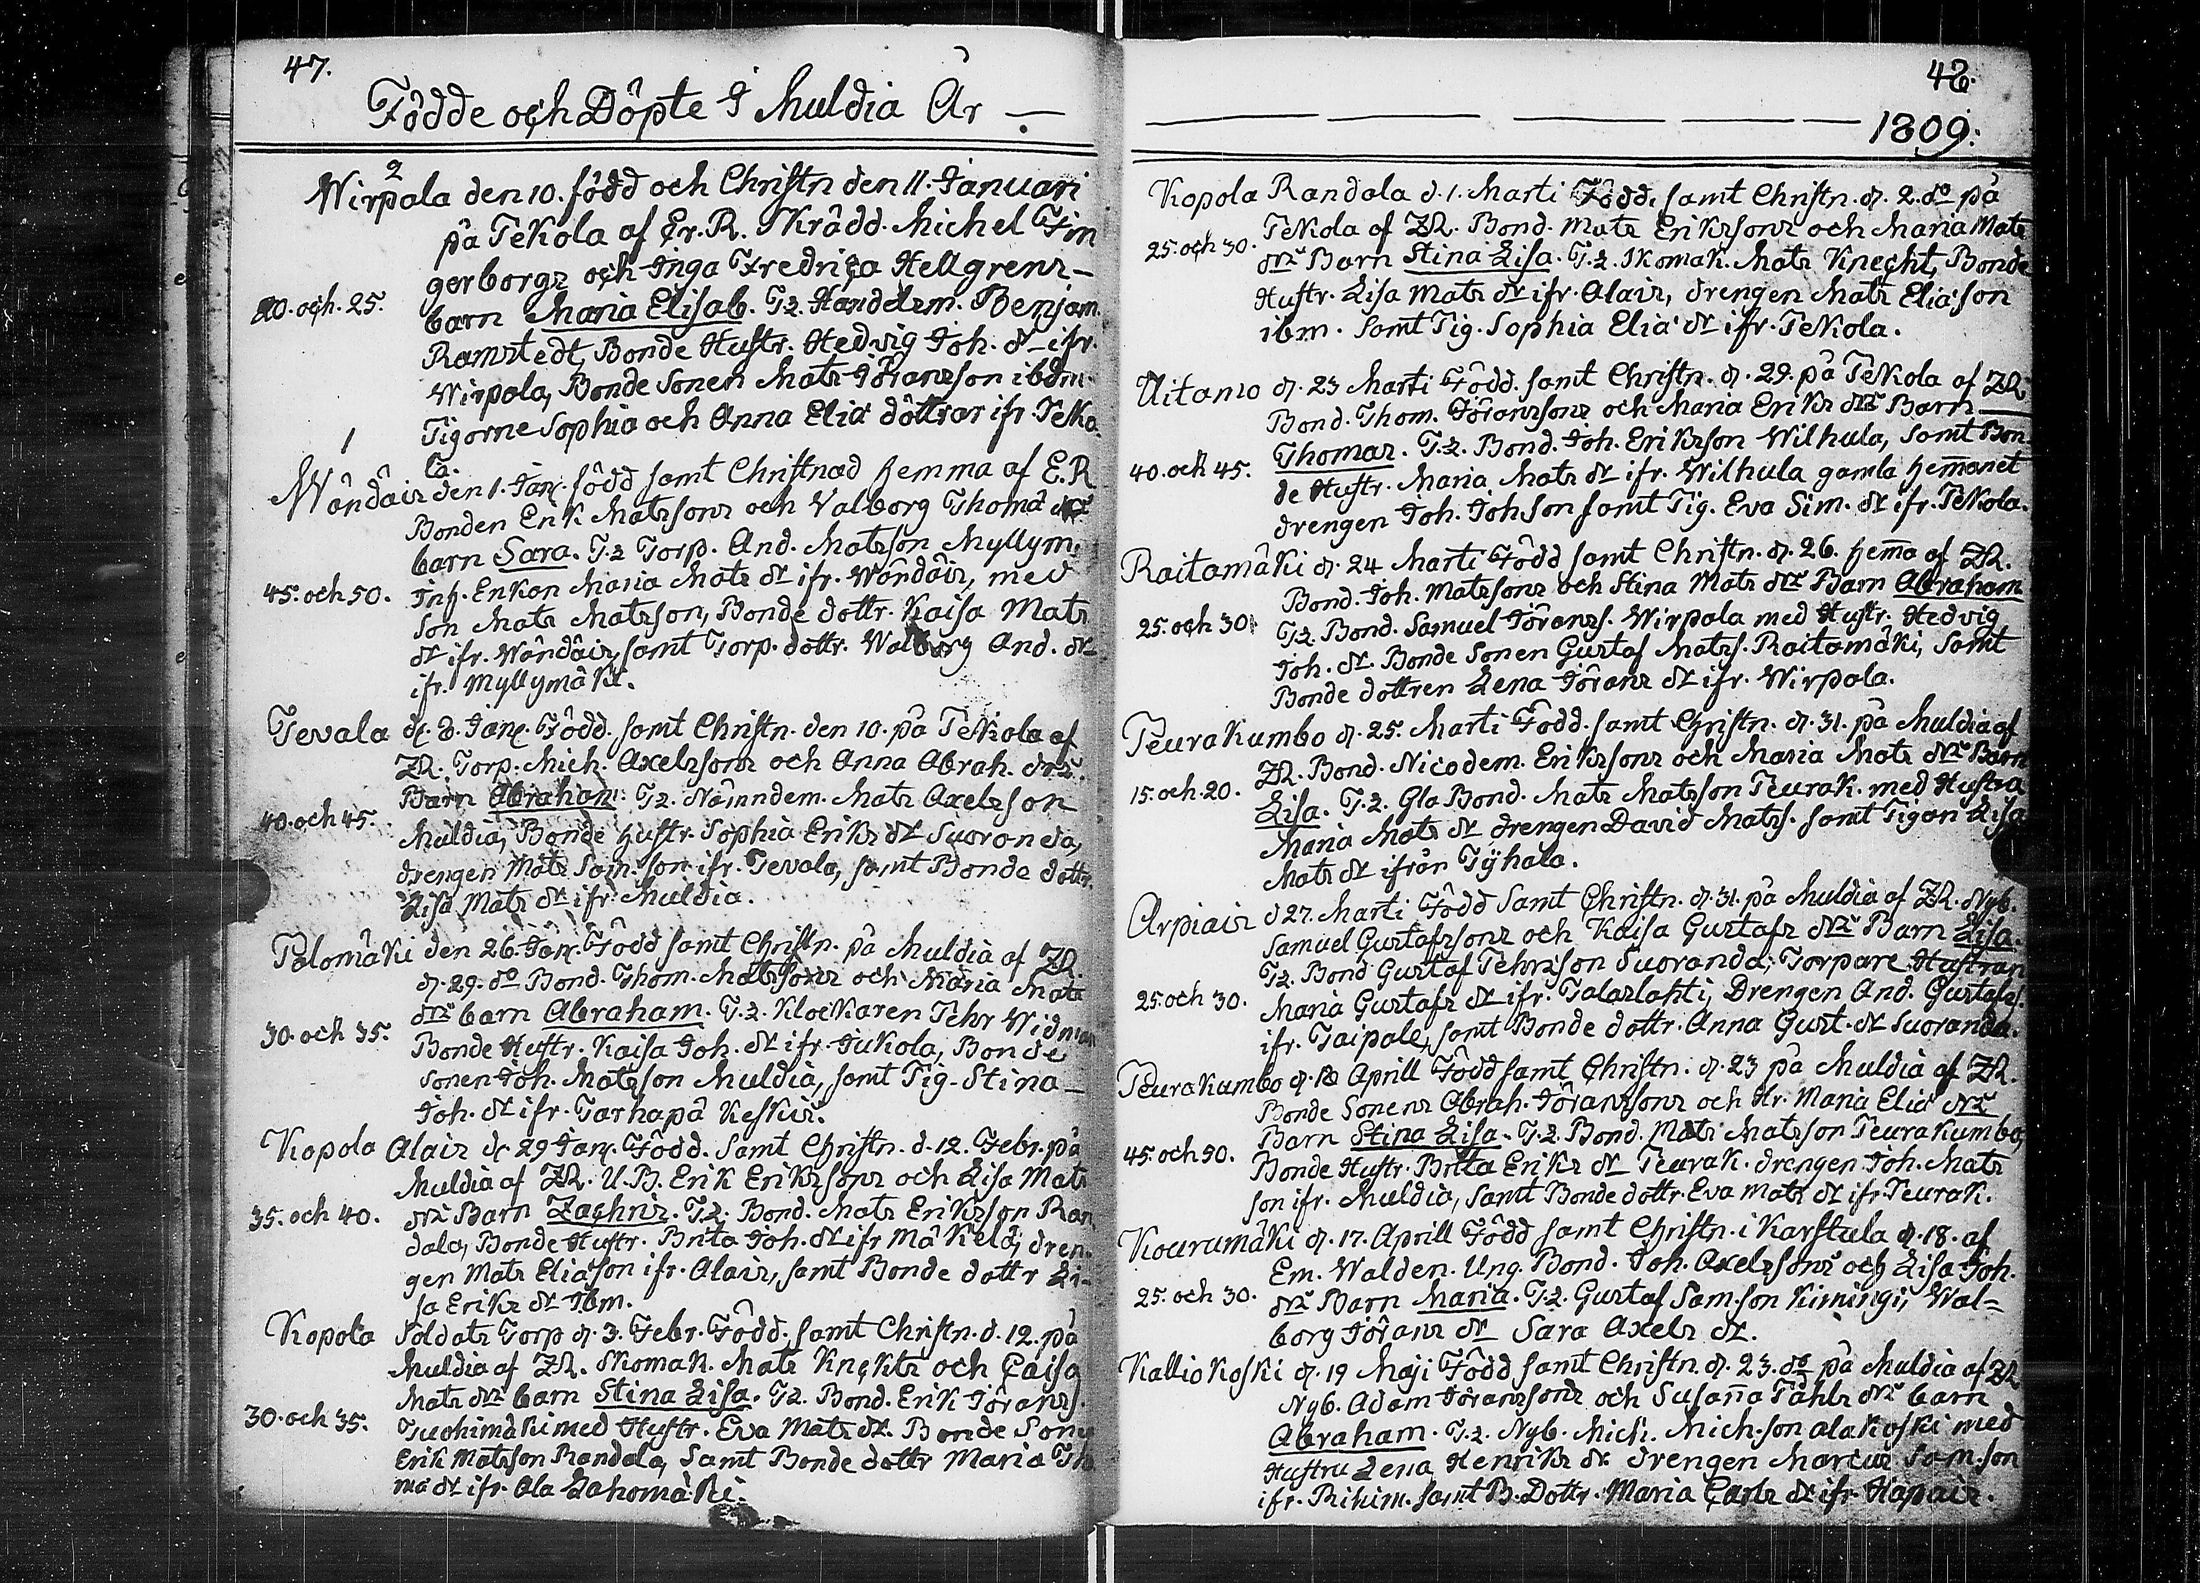 47.
Födde och Döpte I Muldia År —
2
Wirpala den 10. född och Christn den 11. Januari
på Tekola af Er. R. Skrädd. Michel Fin
gerborgs och Inga Fredrica Hellgrens –
20. och. 25.
barn Maria Elisab. T.2. Handelsm. Benjam.
Ramstedt, Bonde Hustr. Hedvig Joh. dr ifr.
Wirpala, Bonde Sonen Mats Jöransson ibdm.
Pigorne Sophia och Anna Eliæ döttrar ifr. Teko
la.
1
Wändäis den 1. Jan. född samt Christnad hemma af E.R
Bonden Erik Matssons och Valborg Thomæ drs
barn Sara. T.2 Torp. And. Matsson Myllym.
45. och 50.
Inh. Enkan Maria Mats dr ifr. Wändäis, med
Son Mats Matsson, Bonde dottr. Kaisa Mats
dr ifr. Wändäis, samt Torp. dottr. Walborg And. dr
ifr. Myllymäki.
Tevala d. 8. Jan. Född. samt Christn. den 10. på Tekola af
ZR. Torp. Mich. Axelssons och Anna Abrah. drs.
Barn Abraham. T.2. Nämndem. Mats Axelsson
40. och 45.
Muldia, Bonde hustr. Sophia Eriks dr Suoranda,
drengen Mats Sam. son ifr. Tevala, samt Bonde dottr.
Lisa Mats dr ifr. Muldia.
Palomäki den 26. Jan. Född samt Christn. på Muldia af ZR.
d. 29. do Bond. Thom. Matssons och Maria Mats
drs barn Abraham. T.2. Klockaren Tehr Widman
30. och 35.
Bonde Hustr. Kaisa Joh. dr ifr. Jukola, Bonde
Sonen Joh. Matsson Muldia, samt Pig. Stina
Joh. dr ifr. Tarhapä Keskis.
Kopola Alais d. 29 Jan. Född. Samt Christn. d. 12. Febr. på
Muldia af ZR. U.B. Erik Erikssons och Lisa Mats
35. och 40.
drs Barn Zachris. T.2. Bond. Mats Eriksson Ran
dala, Bonde Hustr. Brita Joh. dr ifr Mäkelä, dren
gen Mats Eliæson ifr. Alais, samt Bonde dottr Li-
sa Eriks dr Ibm.
Kopola Soldats Torp d. 3. Febr. Född. samt Christn. d. 12. på
Muldia af ZR. Skomak. Mats Knektz och Caisa
Mats drs barn Stina Lisa. T.2. Bond. Erik Jöranss.
30. och 35.
Tuohimäki med Hustr. Eva Mats dr. Bonde Sonen
Erik Matsson Randala, Samt Bonde dottr Maria Tho
mæ dr ifr. Ala Lahomäki.
48.
1809.
Kopola Randala d. 1. Marti Född. samt Christn. d. 2. do på
Tekola af ZR. Bond. Mats Erikssons och Maria Mats
25. och 30.
drs Barn Stina Lisa. T.2. Skomak. Mats Knecht, Bonde
Hustr. Lisa Mats dr ifr. Alais, drengen Mats Eliæson
ibm. Samt Pig. Sophia Eliæ dr ifr. Tekola.
Aitamo d. 23 Marti Född. samt Christn. d. 29. på Tekola af ZR
Bond. Thom. Jöranssons och Maria Eriks drs Barn
Thomas. T.2. Bond. Joh. Eriksson Wilhula, samt Bon
40. och 45.
de Hustr. Maria Mats dr ifr. Wilhula gamla hemanet
drengen Joh. Johson samt Pig. Eva Sim. dr ifr. Tekola.
Raitamäki d. 24 Marti Född samt Christn. d. 26. hema af ZR.
Bond. Joh. Matssons och Stina Mats drs Barn Abraham
25. och 30.
T.2. Bond. Samuel Jöranss. Wirpala med Hustr. Hedvig
Joh. dr. Bonde Sonen Gustaf Matss. Raitamäki, samt
Bonde dottren Lena Jörans dr ifr. Wirpala.
Peurakumbo d. 25. Marti Född. samt Christn. d. 31. på Muldia af
ZR. Bond. Nicodem. Erikssons och Maria Mats drs Barn
15. och. 20.
Lisa. T.2. Gla Bond. Mats Matsson Peurak. med Hustru
Maria Mats dr drengen David Matss. samt Pigan Lisa
Mats dr ifrån Tyhala.
Arpiais d 27. Marti Född Samt Christn. d. 31. på Muldia af ZR. Nyb.
Samuel Gustafssons och Kaisa Gustafs drs Barn Lisa.
T.2. Bond Gustaf Tehrsson Suoranda, Torpare Hustran
25. och 30.
Maria Gustafs dr ifr. Talaslahti, Drengen And. Gustafss.
ifr. Taipale, samt Bonde dottr. Anna Gust. dr Suoranda.
Peurakumbo d. 18 Aprill Född samt Christn. d. 23 på Muldia af ZR.
Bonde Sonens Abrah. Jöranssons och Hr. Maria Eliæ drs
Barn Stina Lisa. T.2. Bond. Mats Matsson Peurakumbo,
45. och 50.
Bonde Hustr. Brita Eriks dr Peurak. drengen Joh. Mats
son ifr. Muldia, samt Bonde dottr. Eva Mats dr ifr. Peurak.
Kourumäki d. 17. Aprill Född samt Christn. i Karstula d. 18. af
Em. Walden. Ung. Bond. Joh. Axelssons och Lisa Joh.
25. och 30.
drs Barn Maria. T.2. Gustaf Sam.son Kimingi, Wal=
borg Jörans dr Sara Axels dr.
Kalliokoski d. 19 Maji Född samt Christn. d. 23. do på Muldia af ZR
Nyb. Adam Jöranssons och Susana Påhls drs barn
Abraham. T.2. Nyb. Mich. Mich.son alakoski med
Hustru Lena Henriks dr drengen Marcus Sam.son
ifr. Rihim. samt B. Dottr. Maria Carls dr ifr. Hapais.